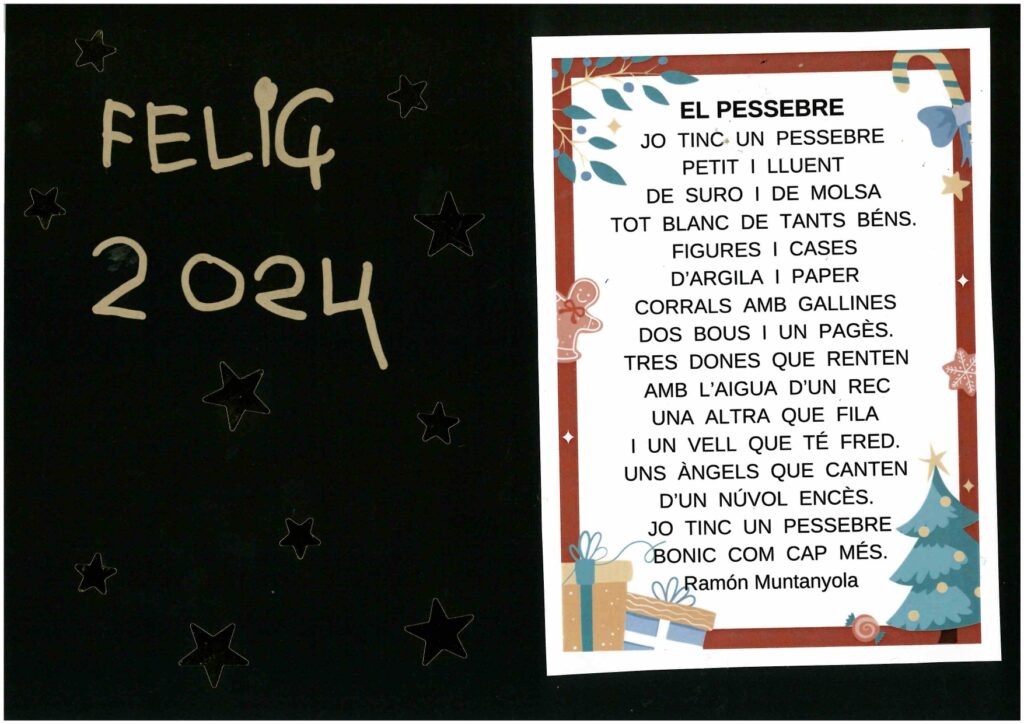 FELIÇ
2024
EL PESSEBRE
JO TINC UN PESSEBRE
PETIT I LLUENT
DE SURO I DE MOLSA
TOT BLANC DE TANTS BÉNS.
FIGURES I CASES
D'ARGILA I PAPER
CORRALS AMB GALLINES
DOS BOUS I UN PAGÈS.
TRES DONES QUE RENTEN
AMB L'AIGUA D'UN REC
UNA ALTRA QUE FILA
I UN VELL QUE TÉ FRED.
UNS ÀNGELS QUE CANTEN
D'UN NÚVOL ENCÈS.
JO TINC UN PESSEBRE
BONIC COM CAP MÉS.
Ramón Muntanyola